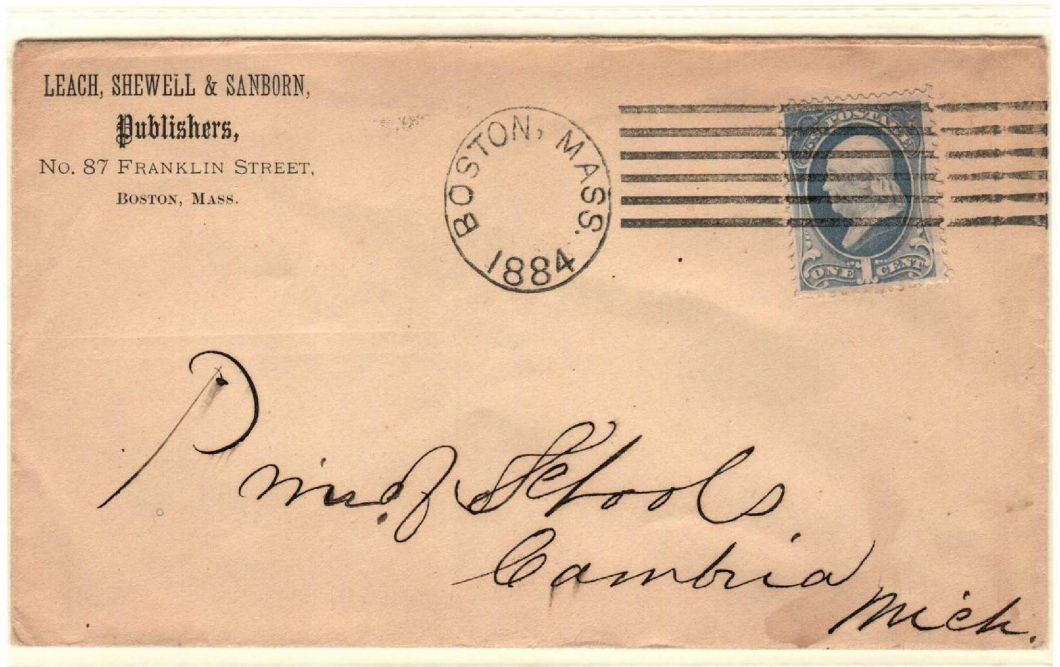 LEACH, SHEWELL & SANBORN,
Publishers,
No. 87 FRANKLIN STREET,
BOSTON, MASS.
BOSTON, MASS.
1884
POSTAGE
ONE 1 CENT
Prin. of Schools
Cambria
Mich.